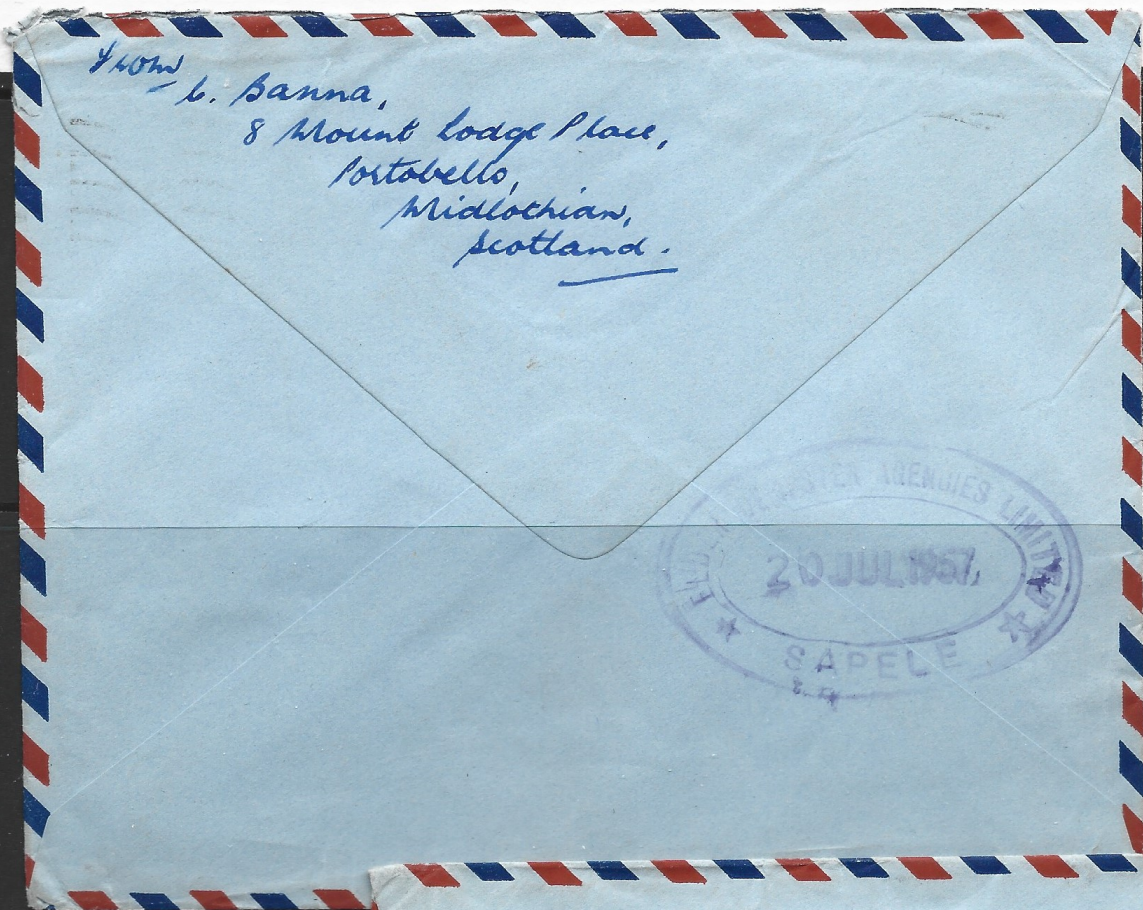 From
C. Banna,
8 Mount Lodge Place,
Portobello,
Midlothian,
Scotland.
ELDER DEMPSTER AGENCIES LIMITED
20 JUL 1967
SAPELE